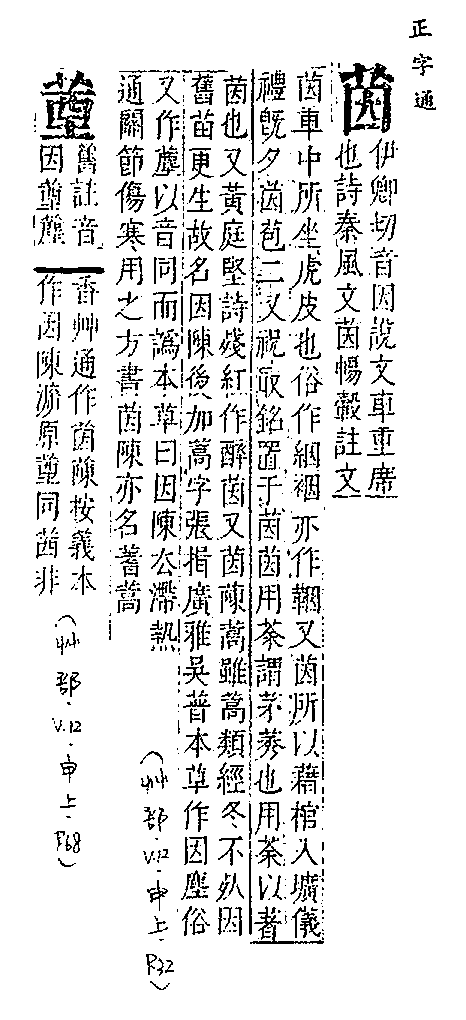 正字通
茵
伊卿切音因說文車重席
也詩秦風文茵暢轂註文
茵車中所坐虎皮也俗作絪裀亦作鞇又茵所以藉棺入壙儀
禮旣夕茵苞二又祝取銘置于茵茵用荼謂茅莠也用荼以著
茵也又黃庭堅詩殘紅作醉茵又茵蔯蒿雖蒿類經冬不㱙因
舊苗更生故名因陳後加蒿字張揖廣雅吳普本草作因塵俗
又作蘼以音同而譌本草曰因陳公滯熱
通關節傷寒用之方書茵陳亦名蓍蒿
舊註音
因
香艸通作茵蔯按義本
作因陳
原
同茵非
(艸部·V.12·申上·P.32)
(艸部·V.12·申上·P.68)